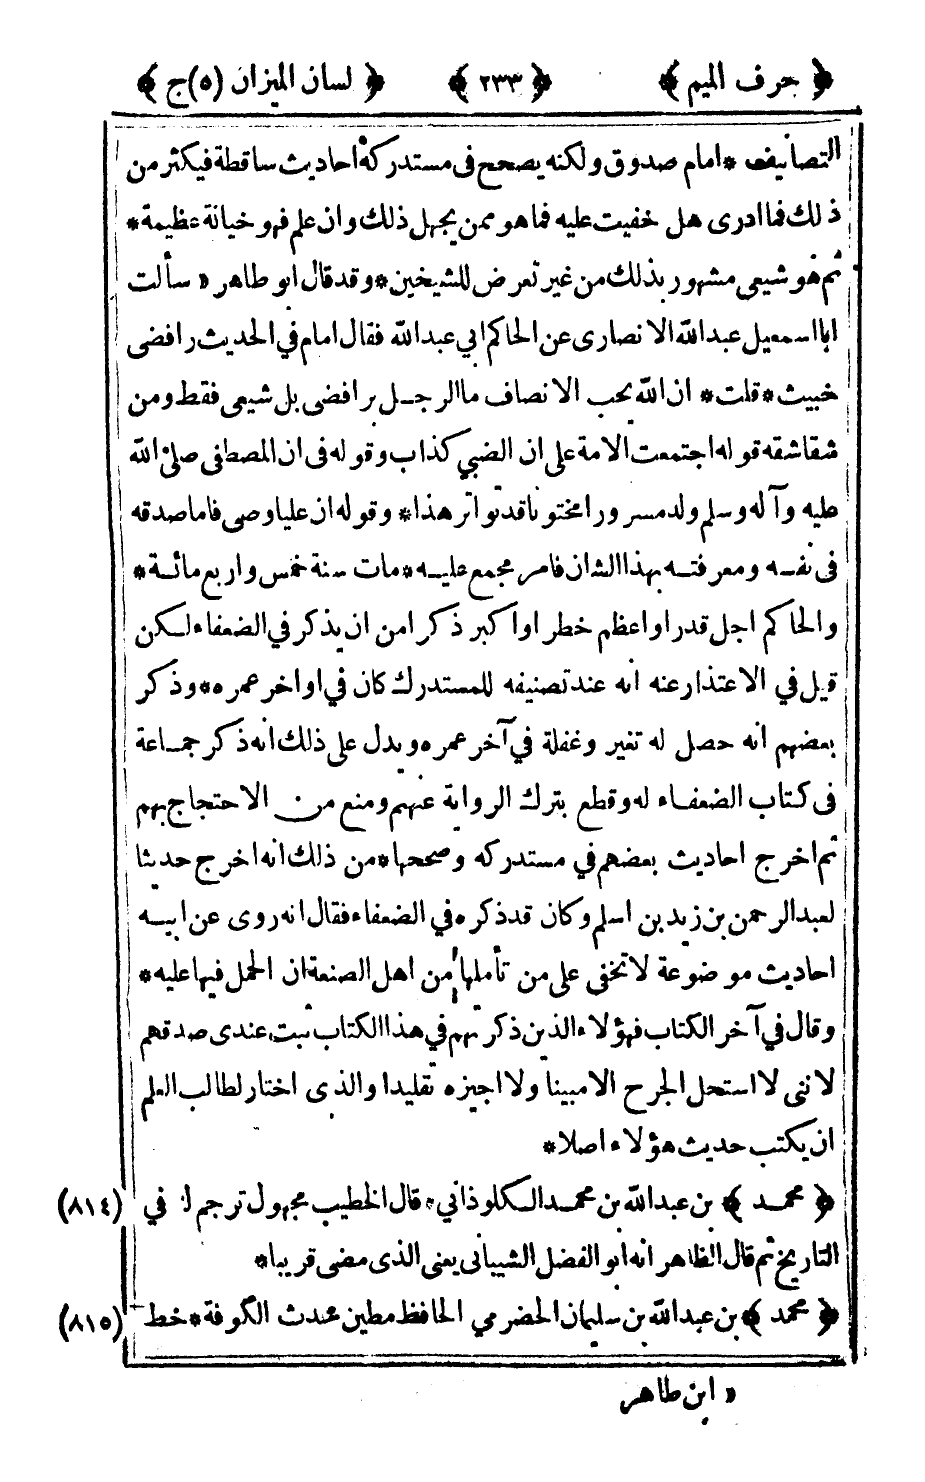 ﴿ حرف الميم ﴾ ﴿ ٢٣٣ ﴾ ﴿ لسان الميزان (٥) ج ﴾
التصانيف * امام صدوق ولكنه يصحح فى مستدركه احاديث ساقطة فيكثر من
ذلك فما ادرى هل خفيت عليه فما هو ممن يجهل ذلك وان علم فهو خيانة عظيمة *
ثم هو شيعى مشهور بذلك من غير تعرض للشيخين * وقد قال ابو طاهر « سألت
ابا اسمعيل عبدالله الانصارى عن الحاكم ابي عبدالله فقال امام في الحديث رافضى
خبيث * قلت * ان الله يحب الانصاف ما الرجل برافضى بل شيعى فقط ومن
شقاشقه قوله اجتمعت الامة على ان الضبي كذاب وقوله فى ان المصطفى صلى الله
عليه وآله وسلم ولد مسرورا مختونا قد تواتر هذا * وقوله ان عليا وصى فاما صدقه
فى نفسه ومعرفته بهذا الشان فامر مجمع عليه * مات سنة خمس واربع مائة *
والحاكم اجل قدرا واعظم خطرا واكبر ذكرا من ان يذكر في الضعفاء لكن
قيل في الاعتذار عنه انه عند تصنيفه للمستدرك كان في اواخر عمره * وذكر
بعضهم انه حصل له تغير وغفلة في آخر عمره ويدل على ذلك انه ذكر جماعة
فى كتاب الضعفاء له وقطع بترك الرواية عنهم ومنع من الاحتجاج بهم
ثم اخرج احاديث بعضهم في مستدركه وصححها * من ذلك انه اخرج حديثا
لعبد الرحمن بن زيد بن اسلم وكان قد ذكره في الضعفاء فقال انه روى عن ابيه
احاديث موضوعة لا تخفى على من تأملها من اهل الصنعة ان الحمل فيها عليه *
وقال في آخر الكتاب فهؤلاء الذين ذكرتهم في هذا الكتاب ثبت عندى صدقهم
لاننى لا استحل الجرح الا مبينا ولا اجيزه تقليدا والذى اختار لطالب العلم
ان يكتب حديث هؤلاء اصلا *
﴿ محمد ﴾ بن عبدالله بن محمد الكلوذاني * قال الخطيب مجهول ترجم له في (٨١٤)
التاريخ ثم قال الظاهر انه ابو الفضل الشيبانى يعنى الذى مضى قريبا *
﴿ محمد ﴾ بن عبدالله بن سليمان الحضرمي الحافظ مطين محدث الكوفة * خط (٨١٥)
« ابن طاهر